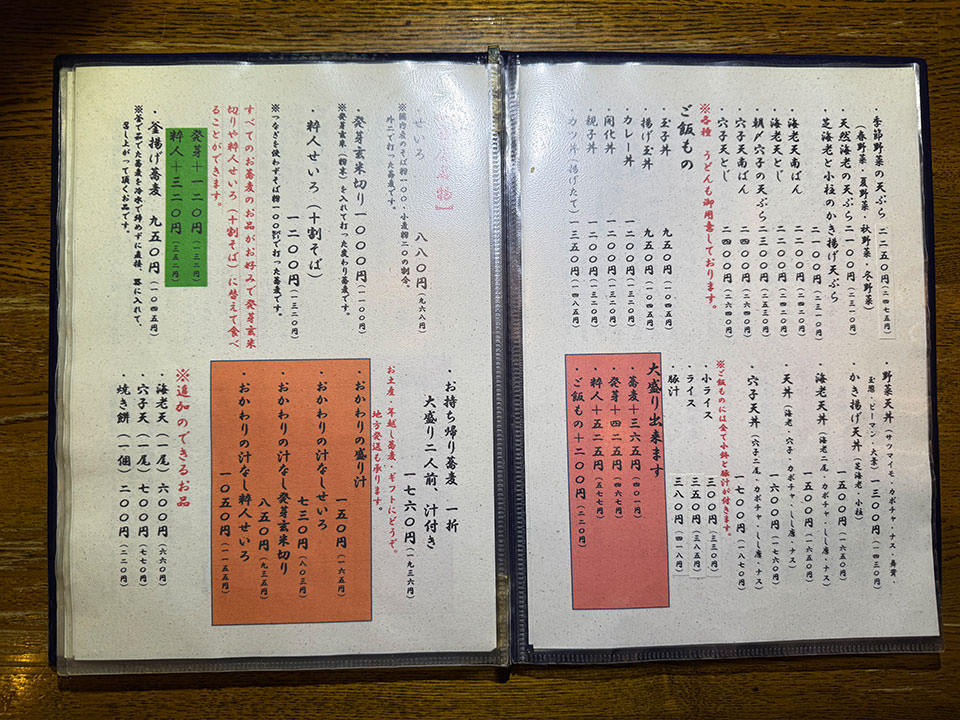 ・季節野菜の天ぷら 二二五〇円(二四七五円)
(春野菜・夏野菜・秋野菜・冬野菜)
・天然海老の天ぷら 二一〇〇円(二三一〇円)
・芝海老と小柱のかき揚げ天ぷら
二一〇〇円(二三一〇円)
・海老天南ばん 二二〇〇円(二四二〇円)
・海老天とじ 二二〇〇円(二四二〇円)
・朝〆穴子の天ぷら 二三〇〇円(二五三〇円)
・穴子天南ばん 二四〇〇円(二六四〇円)
・穴子天とじ 二四〇〇円(二六四〇円)
※各種 うどんも御用意しております。
ご飯もの
・玉子丼 九五〇円(一〇四五円)
・揚げ玉丼 九五〇円(一〇四五円)
・カレー丼 一二〇〇円(一三二〇円)
・開化丼 一二〇〇円(一三二〇円)
・親子丼 一二〇〇円(一三二〇円)
・カツ丼(揚げたて) 一三五〇円(一四八五円)
・野菜天丼(サツマイモ・カボチャ・ナス・舞茸・
玉葱・ピーマン・大葉) 一三〇〇円(一四三〇円)
・かき揚げ天丼(芝海老・小柱)
一五〇〇円(一六五〇円)
・海老天丼(海老二尾・カボチャ・しし唐・ナス)
一五〇〇円(一六五〇円)
・天丼(海老・穴子・カボチャ・しし唐・ナス)
一六〇〇円(一七六〇円)
・穴子天丼(穴子二尾・カボチャ・しし唐・ナス)
一七〇〇円(一八七〇円)
※ご飯ものには全て小鉢と豚汁が付きます。
・小ライス 三〇〇円(三三〇円)
・ライス 三五〇円(三八五円)
・豚汁 三八〇円(四一八円)
大盛り出来ます
・蕎麦+三六五円(四〇一円)
・発芽+四二五円(四六七円)
・粋人+五二五円(五七七円)
・ご飯もの+二〇〇円(二二〇円)
物】
・せいろ 八八〇円(九六八円)
※国内産のそば粉一〇〇、小麦粉二〇の割合、
外二で打った蕎麦です。
・発芽玄米切り 一〇〇〇円(一一〇〇円)
※発芽玄米(粉末)を入れて打った変わり蕎麦です。
・粋人せいろ(十割そば)
一二〇〇円(一三二〇円)
※つなぎを使わずそば粉一〇〇%で打った蕎麦です。
すべてのお蕎麦のお品がお好みで発芽玄米
切りや粋人せいろ(十割そば)に替えて食べ
ることができます。
発芽+一二〇円(一三二円)
粋人+三二〇円(三五二円)
・釜揚げ蕎麦 九五〇円(一〇四五円)
※釜で茹でた蕎麦を冷水で締めずに直接、器に入れて、
召し上がって頂くお品です。
・お持ち帰り蕎麦 一折
大盛り二人前、汁付き
一七六〇円(一九三六円)
お土産・年越し蕎麦・ギフトにどうぞ。
地方発送も承ります。
・おかわりの盛り汁
一五〇円(一六五円)
・おかわりの汁なしせいろ
七三〇円(八〇三円)
・おかわりの汁なし発芽玄米切り
八五〇円(九三五円)
・おかわりの汁なし粋人せいろ
一〇五〇円(一一五五円)
※追加のできるお品
・海老天(一尾) 六〇〇円(六六〇円)
・穴子天(一尾) 七〇〇円(七七〇円)
・焼き餅(一個) 二〇〇円(二二〇円)